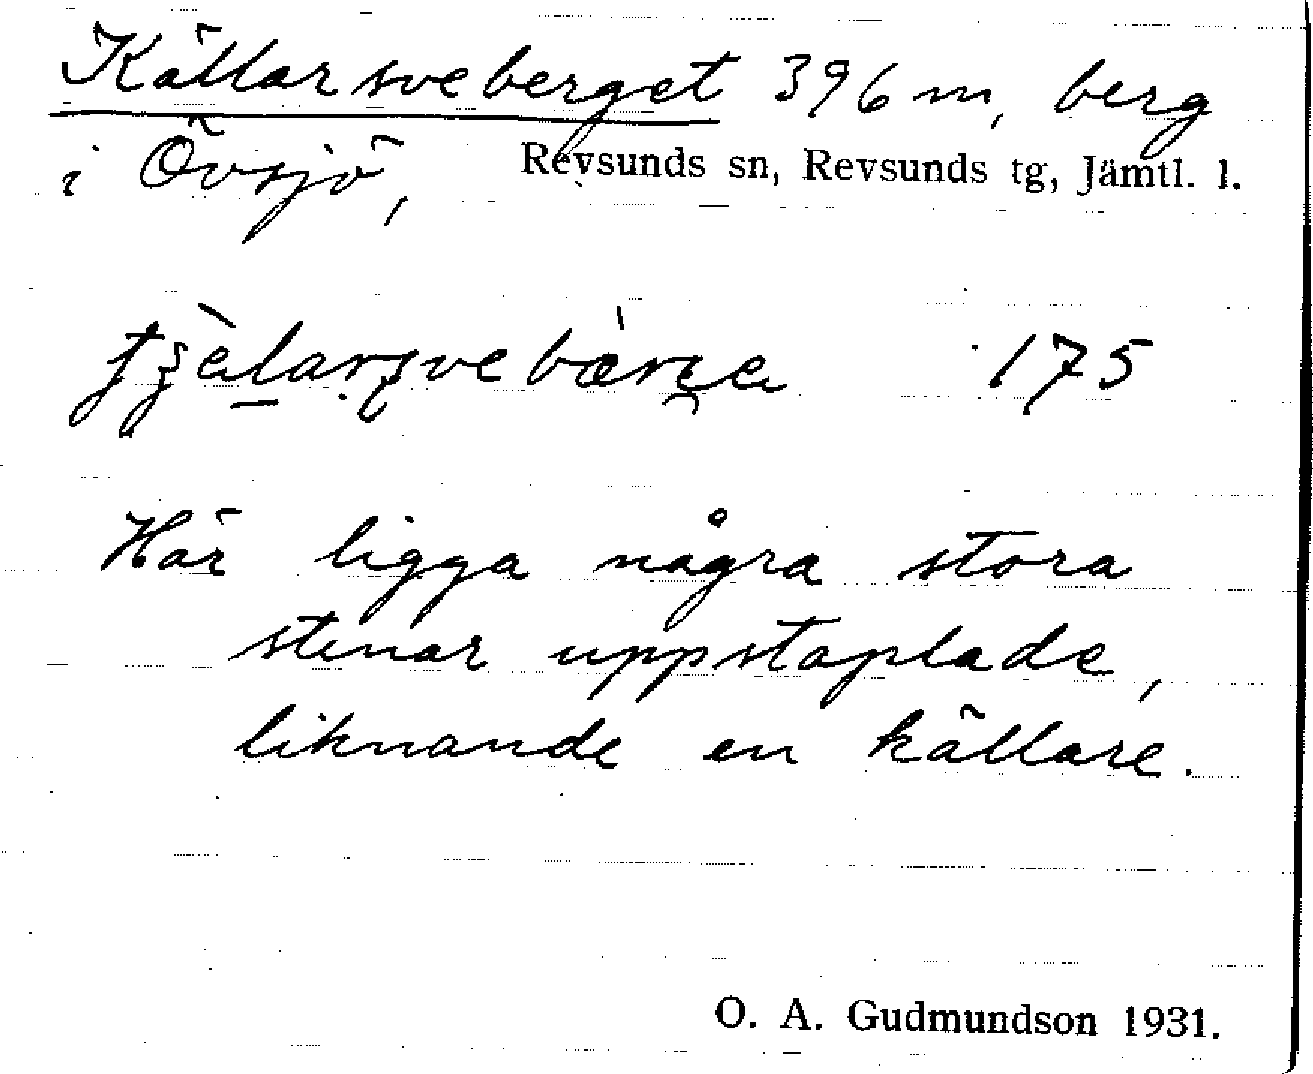 Källarsveberget 396 m, berg
i Övsjö, Revsunds sn, Revsunds tg, Jämtl. l.
175
Här ligga några stora
stenar uppstaplade,
liknande en källare.
O. A. Gudmundson 1931.